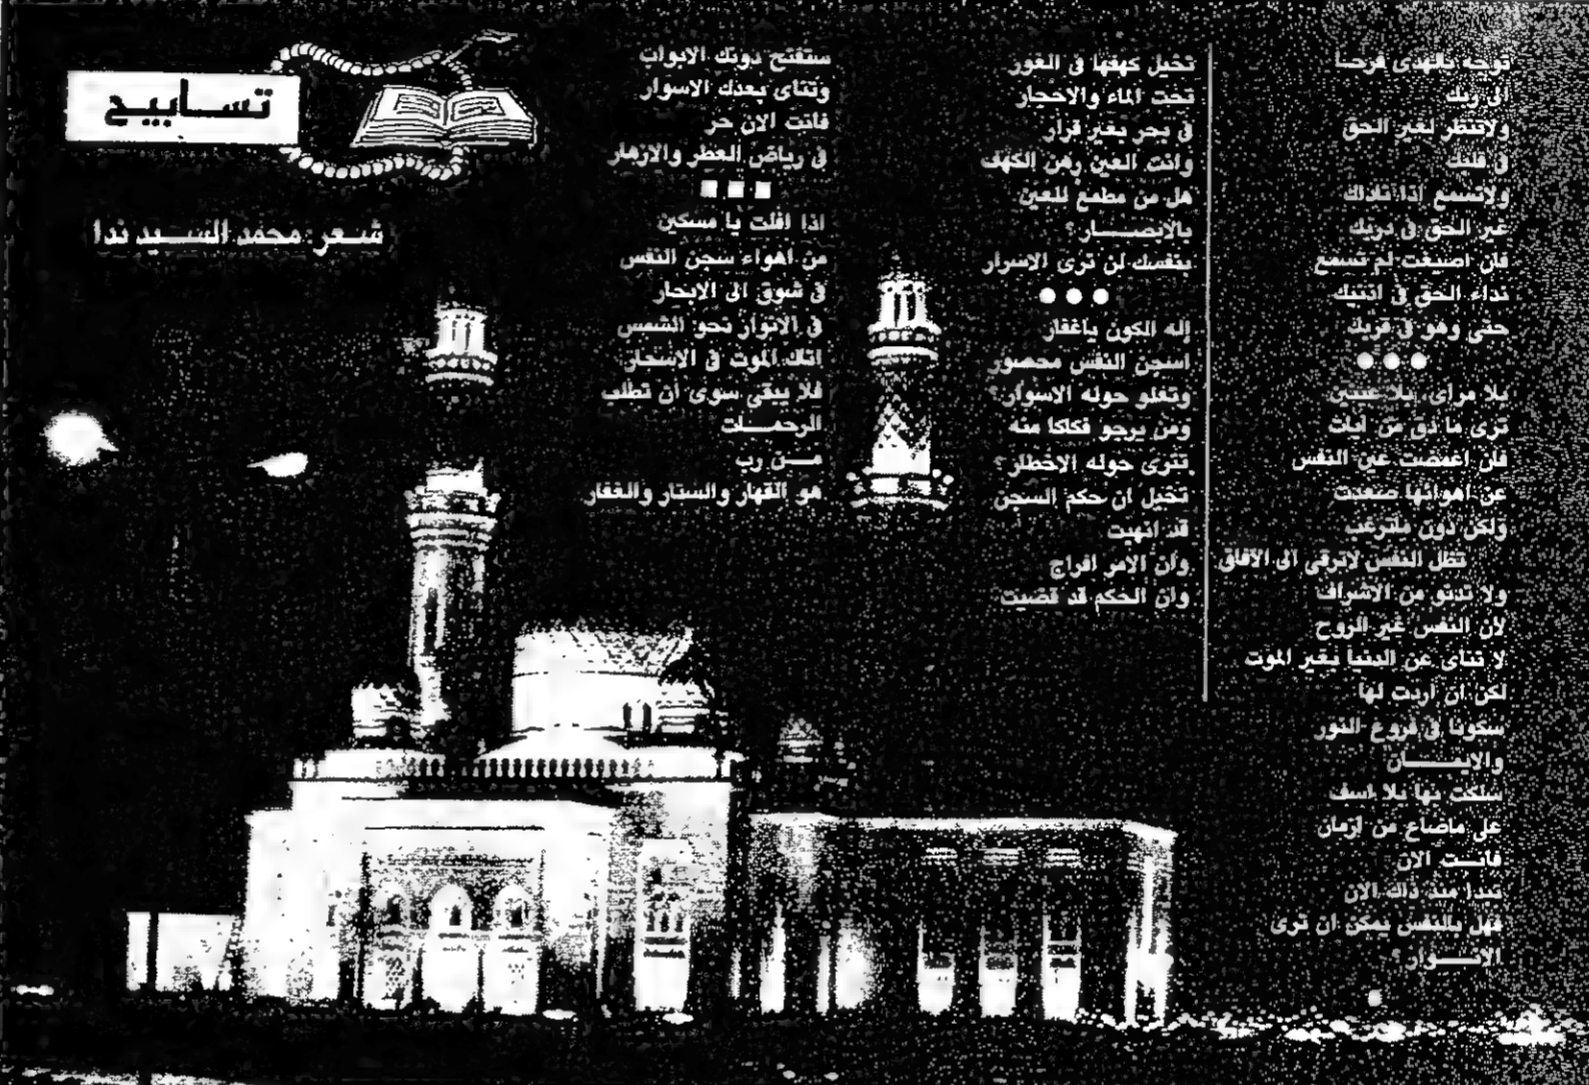 تسابيح
شعر: محمد السيد ندا
توجه بالهدى فرحا
الى ربك
ولاتنظر لغير الحق
فى قلبك
ولاتسمع إذا ناداك
غير الحق فى دربك
فان اصغيت لم تسمع
نداء الحق فى اذنيك
حتى وهو فى قربك
●●●
بلا مرأى بلا عينين
ترى ما دق من آيات
فان اغمضت عين النفس
عن اهوائها صعدت
ولكن دون ماترغب
تظل النفس لاترقى الى الآفاق
ولا تدنو من الاشراف
لان النفس غير الروح
لا تناى عن الدنيا بغير الموت
لكن ان اردت لها
سكونا فى فروع النور
والايمـــان
سلكت بها بلا اسف
على ماضاع من ازمان
فانـت الان
تبدا منذ ذاك الان
فهل بالنفس يمكن ان ترى
الانـــوار ؟
تخيل كهفها فى الغور
تحت الماء والاحجار
فى بحر بغير قرار
وانت العين رهن الكهف
هل من مطمع للعين
بالابصــــار ؟
بنفسك لن ترى الاسرار
●●●
إله الكون ياغفار
اسجن النفس محصور
وتعلو حوله الاسوار
ومن يرجو فكاكا منه
تترى حوله الاخطار ؟
تخيل ان حكم السجن
قد انهيت
وان الامر افراج
وان الحكم قد قضيت
ستفتح دونك الابواب
وتناى بعدك الاسوار
فانت الان حر
فى رياض العطر والازهار
■■■
اذا افلت يا مسكين
من اهواء سجن النفس
فى شوق الى الابحار
فى الانوار نحو الشمس
اتاك الموت فى الاسحار
فلا يبقى سوى أن تطلب
الرحمــات
مــن رب
هو القهار والستار والغفار